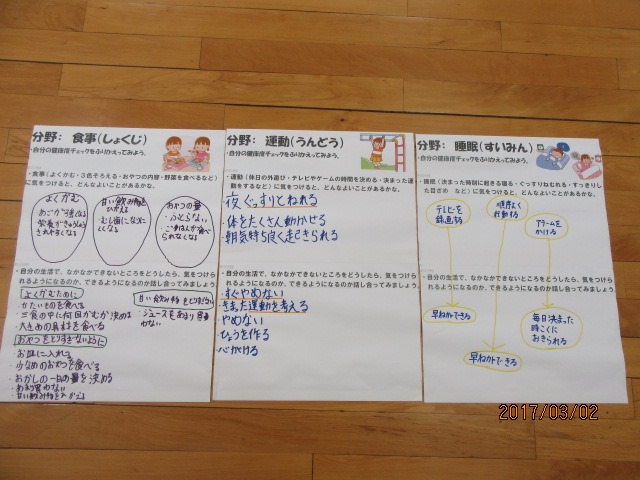 分野： 食事(しょくじ)
・自分の健康度チェックをふりかえってみよう。
・食事(よくかむ・3色そろえる・おやつの内容・野菜を食べるなど)
に気をつけると、どんなよいことがあるかな。
よくかむ
あごが強くなる
甘い飲み物を
ひかえる
むし歯になりにくくなる
おやつの量
ふとらない
ごはんが食べられなくなる
・自分の生活で、なかなかできないところをどうしたら、気をつけられるようになるのか、できるようになるのか話し合ってみましょう。
よくかむために
・かたいものを食べる
・三食の中で何回かむか決める
・大きめの具材を食べる
おやつをとりすぎないように
・お皿に入れる
・少なめのおやつを食べる
・おかしの一日の量を決める
・あまり買わない
・甘い飲み物をひかえる
・ジュースをあまり買わない
分野： 運動(うんどう)
・自分の健康度チェックをふりかえってみよう。
・運動(休日の外遊び・テレビやゲームの時間を決める・決まった運動をするなど)に気をつけると、どんなよいことがあるかな。
・夜ぐっすりとねれる
・体をたくさん動かせる
・朝気持ち良く起きられる
・自分の生活で、なかなかできないところをどうしたら、気をつけられるようになるのか、できるようになるのか話し合ってみましょう。
・すぐやめない
・きまった運動を考える
・やめない
・ひょうを作る
・心がける
分野： 睡眠(すいみん)
・自分の健康度チェックをふりかえってみよう。
・睡眠(決まった時刻に起きる寝る・ぐっすりねむれる・すっきりした目ざめ など)に気をつけると、どんなよいことがあるかな。
テレビを
録画する
順序よく
行動する
アラームを
かける
・自分の生活で、なかなかできないところをどうしたら、気をつけられるようになるのか、できるようになるのか話し合ってみましょう。
早ねができる
早ねができる
毎日決まった
時こくに
おきられる
2017/03/02